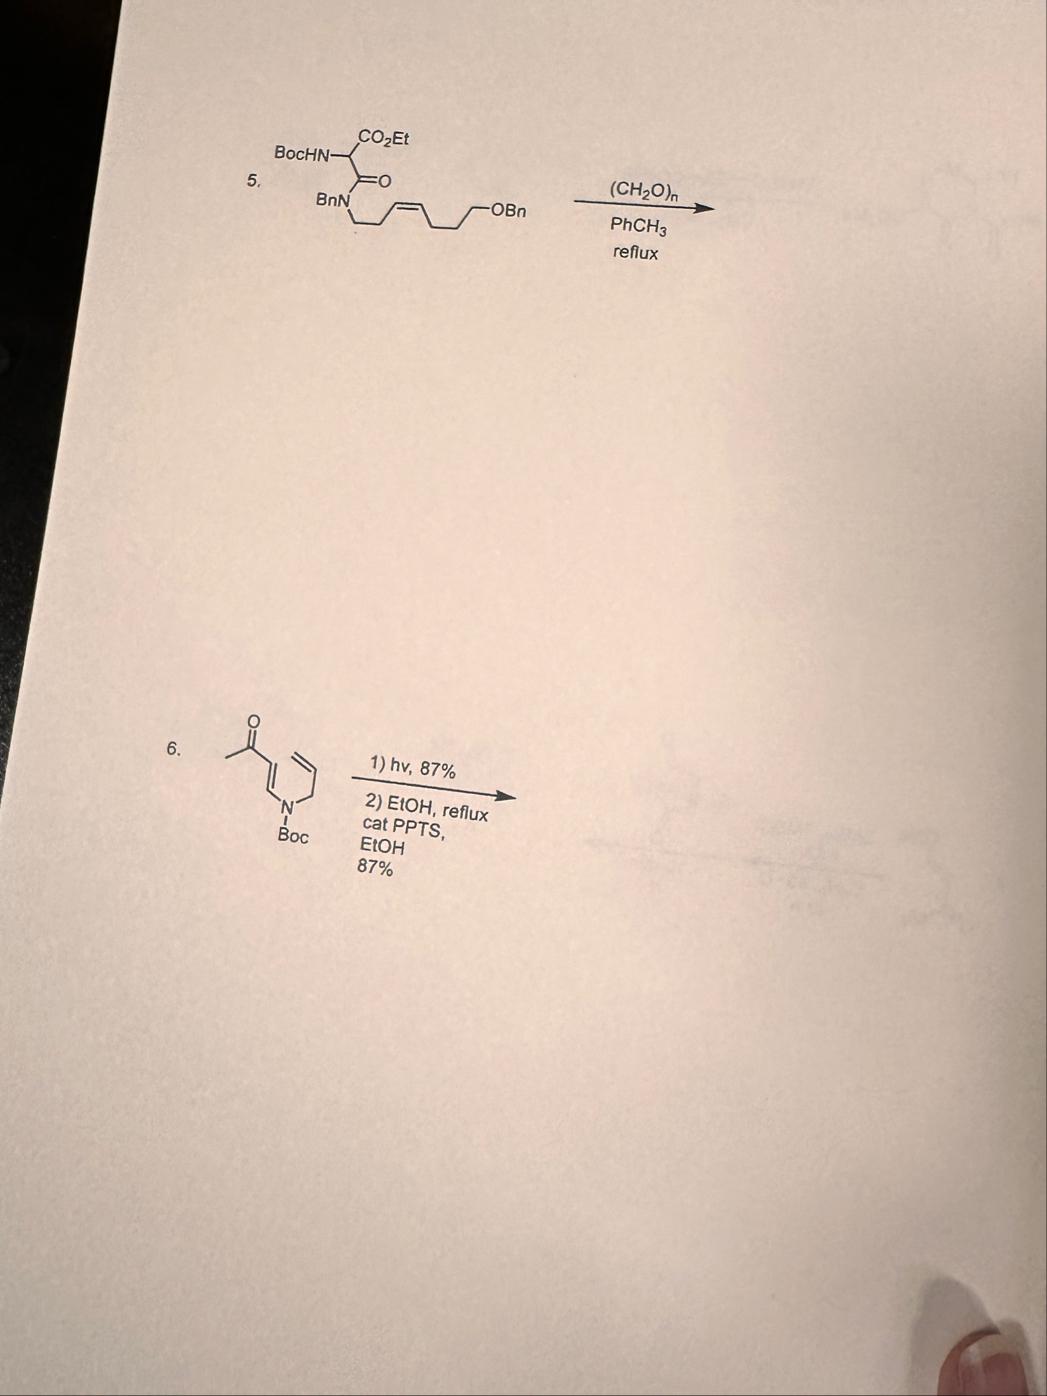 5.
BocHN
CO₂Et
O
BnN
OBn
(CH₂O)ₙ
PhCH₃
reflux
6.
O
N
Boc
1) hv, 87%
2) EtOH, reflux
cat PPTS,
EtOH
87%